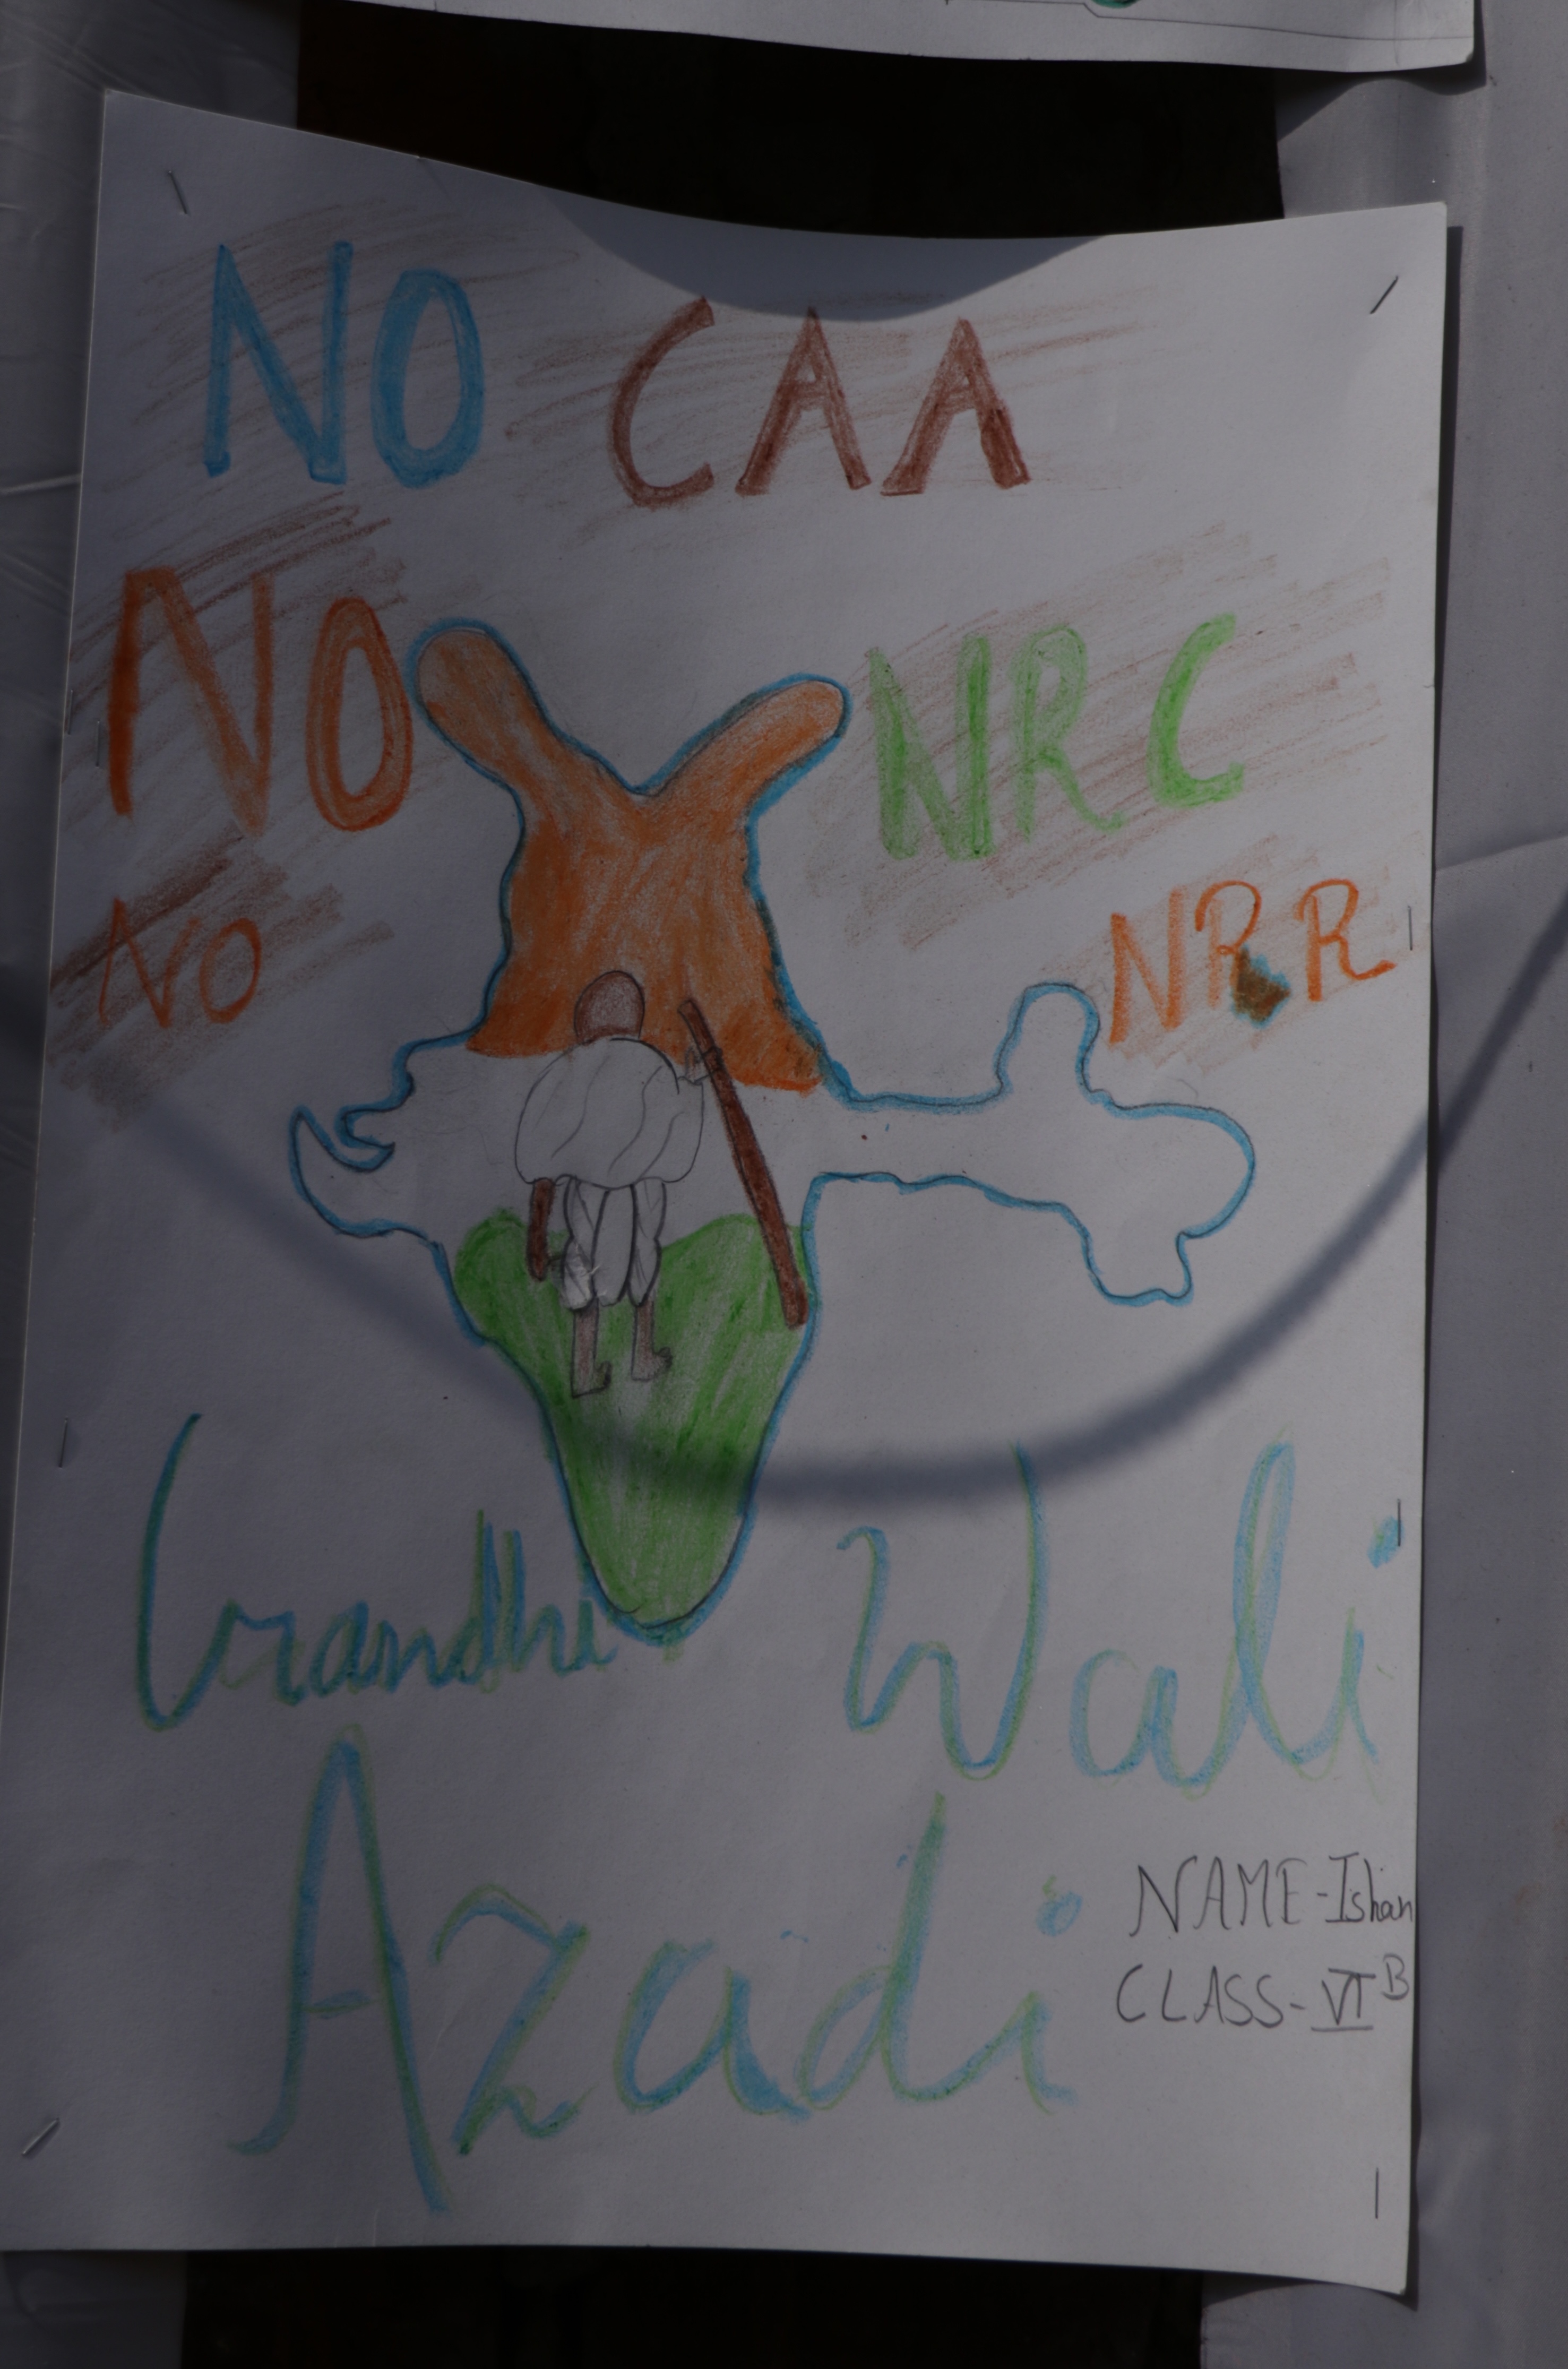 NO CAA
NO NRC
NO NRR
Gandhi Wali
Azadi
NAME-Ishan
CLASS-VI B